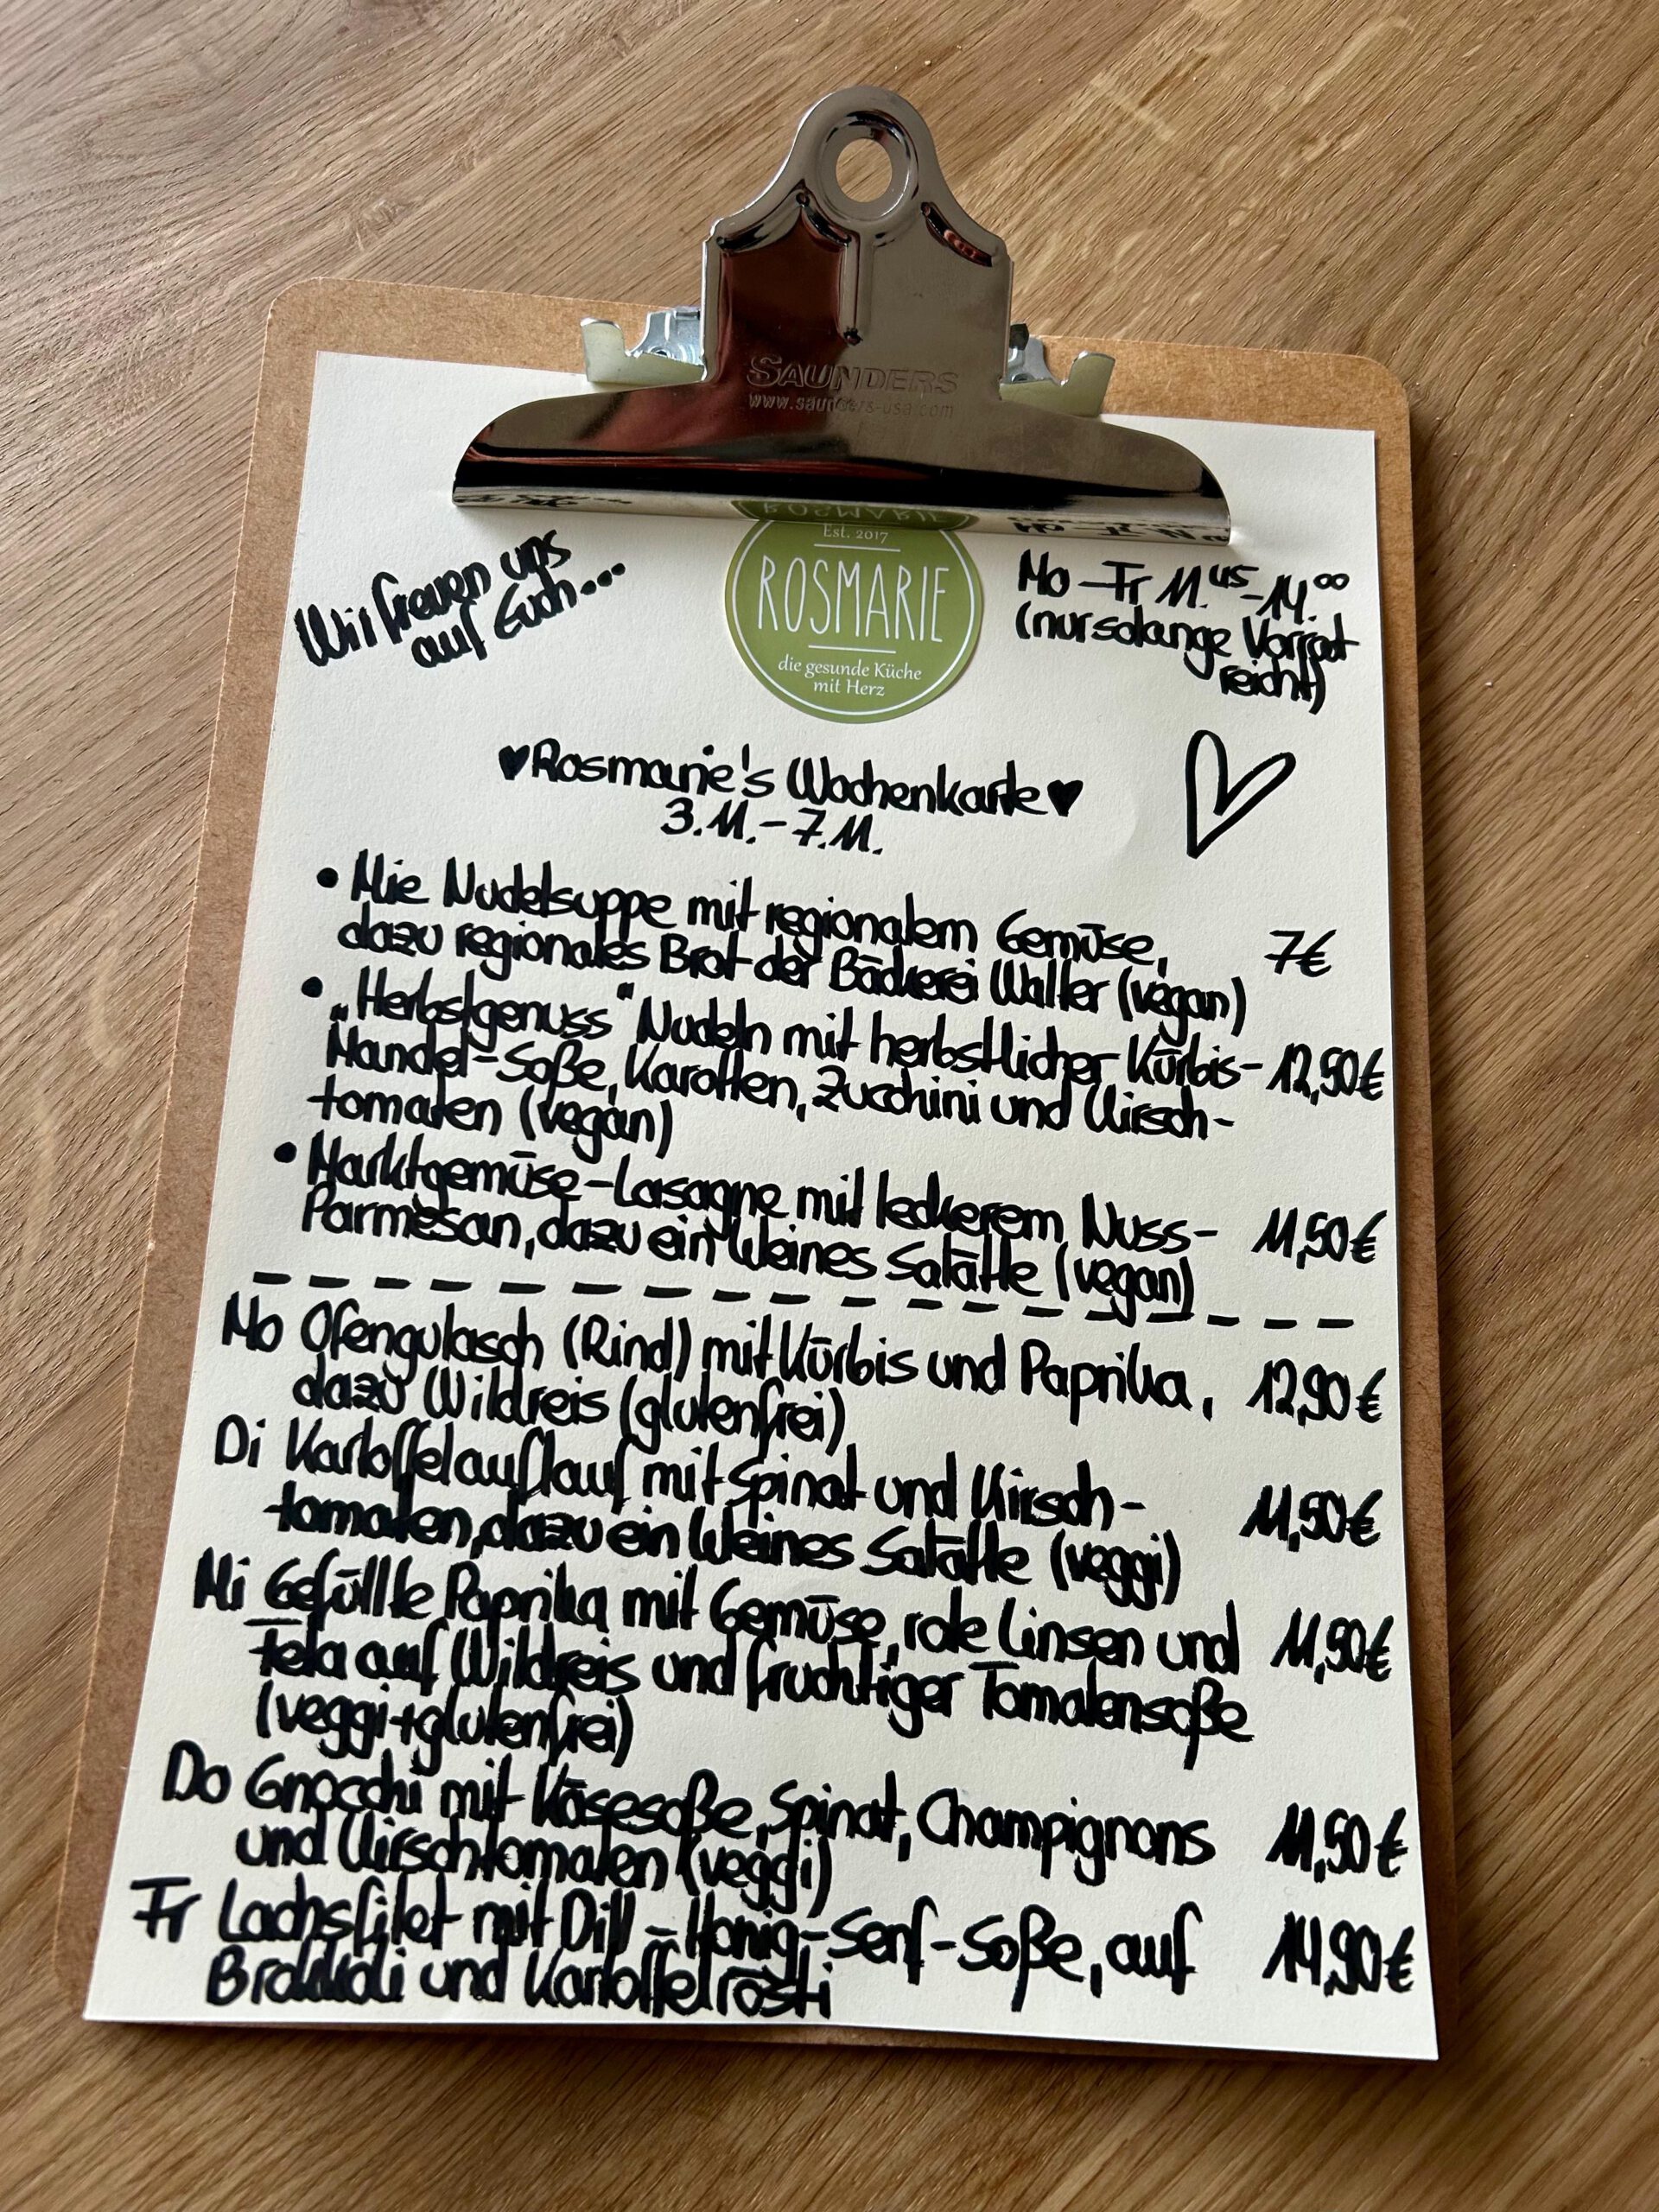 SAUNDERS
www.saunders-usa.com
Wir freuen uns
auf Euch...
Est. 2017
ROSMARIE
die gesunde Küche
mit Herz
Mo - Fr 11.45-14.00
(nur solange Vorrat
reicht)
♥Rosmarie's Wochenkarte♥
3.11.-7.11.
• Mie Nudelsuppe mit regionalem Gemüse, 7€
dazu regionales Brot der Bäckerei Walter (vegan)
• „Herbstgenuss“ Nudeln mit herbstlicher Kürbis- 12,50€
Mandel-Soße, Karotten, Zucchini und Kirsch-
tomaten (vegan)
• Marktgemüse-Lasagne mit leckerem Nuss- 11,50€
Parmesan, dazu ein kleines Salätle (vegan)
Mo Ofengulasch (Rind) mit Kürbis und Paprika, 12,90€
dazu Wildreis (glutenfrei)
Di Kartoffelauflauf mit Spinat und Kirsch- 11,50€
tomaten, dazu ein kleines Salätle (veggi)
Mi Gefüllte Paprika mit Gemüse, rote Linsen und 11,50€
Feta auf Wildreis und fruchtiger Tomatensoße
(veggi+glutenfrei)
Do Gnocchi mit Käsesoße, Spinat, Champignons 11,50€
und Kirschtomaten (veggi)
Fr Lachsfilet mit Dill-Honig-Senf-Soße, auf 14,90€
Brokkoli und Kartoffelrösti